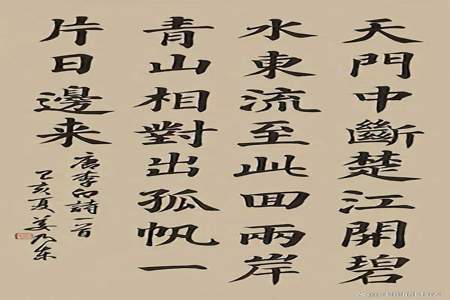 天門中斷楚江開碧
水東流至此回兩岸
青山相對出孤帆一
片日邊来
唐李白詩一首
乙亥夏姜